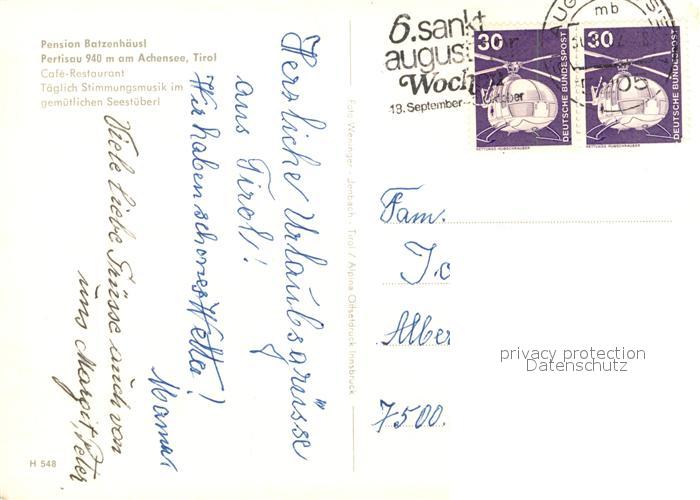 Pension Batzenhäusl
Pertisau 940 m am Achensee, Tirol
Café-Restaurant
Täglich Stimmungsmusik im
gemütlichen Seestüberl
Herzliche Urlaubsgrüsse
aus Tirol!
Wir haben schönes Wetter!
Mama
Viele liebe Grüsse auch von
uns Margit, Peter
H 548
Foto Wenninger Jenbach - Tirol / Alpina Offsetdruck Innsbruck
6. sankt
august
Woch
13. September
ktober
mb
30
DEUTSCHE BUNDESPOST
RETTUNGS-HUBSCHRAUBER
30
DEUTSCHE BUNDESPOST
RETTUNGS-HUBSCHRAUBER
Fam.
Alber
7500.
privacy protection
Datenschutz